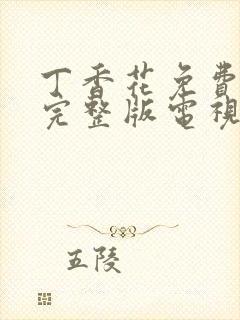 丁香花免費
完整版電視
五陵